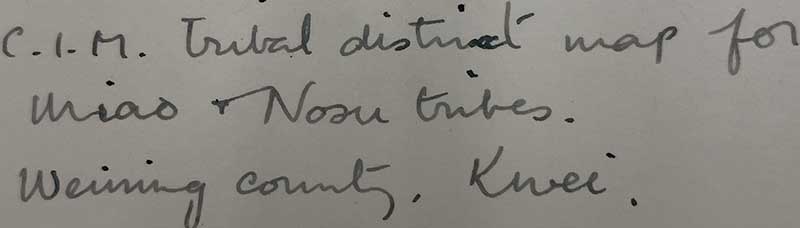 C.I.M. Tribal district map for
Miao + Nosu tribes.
Weining county, Kwei.